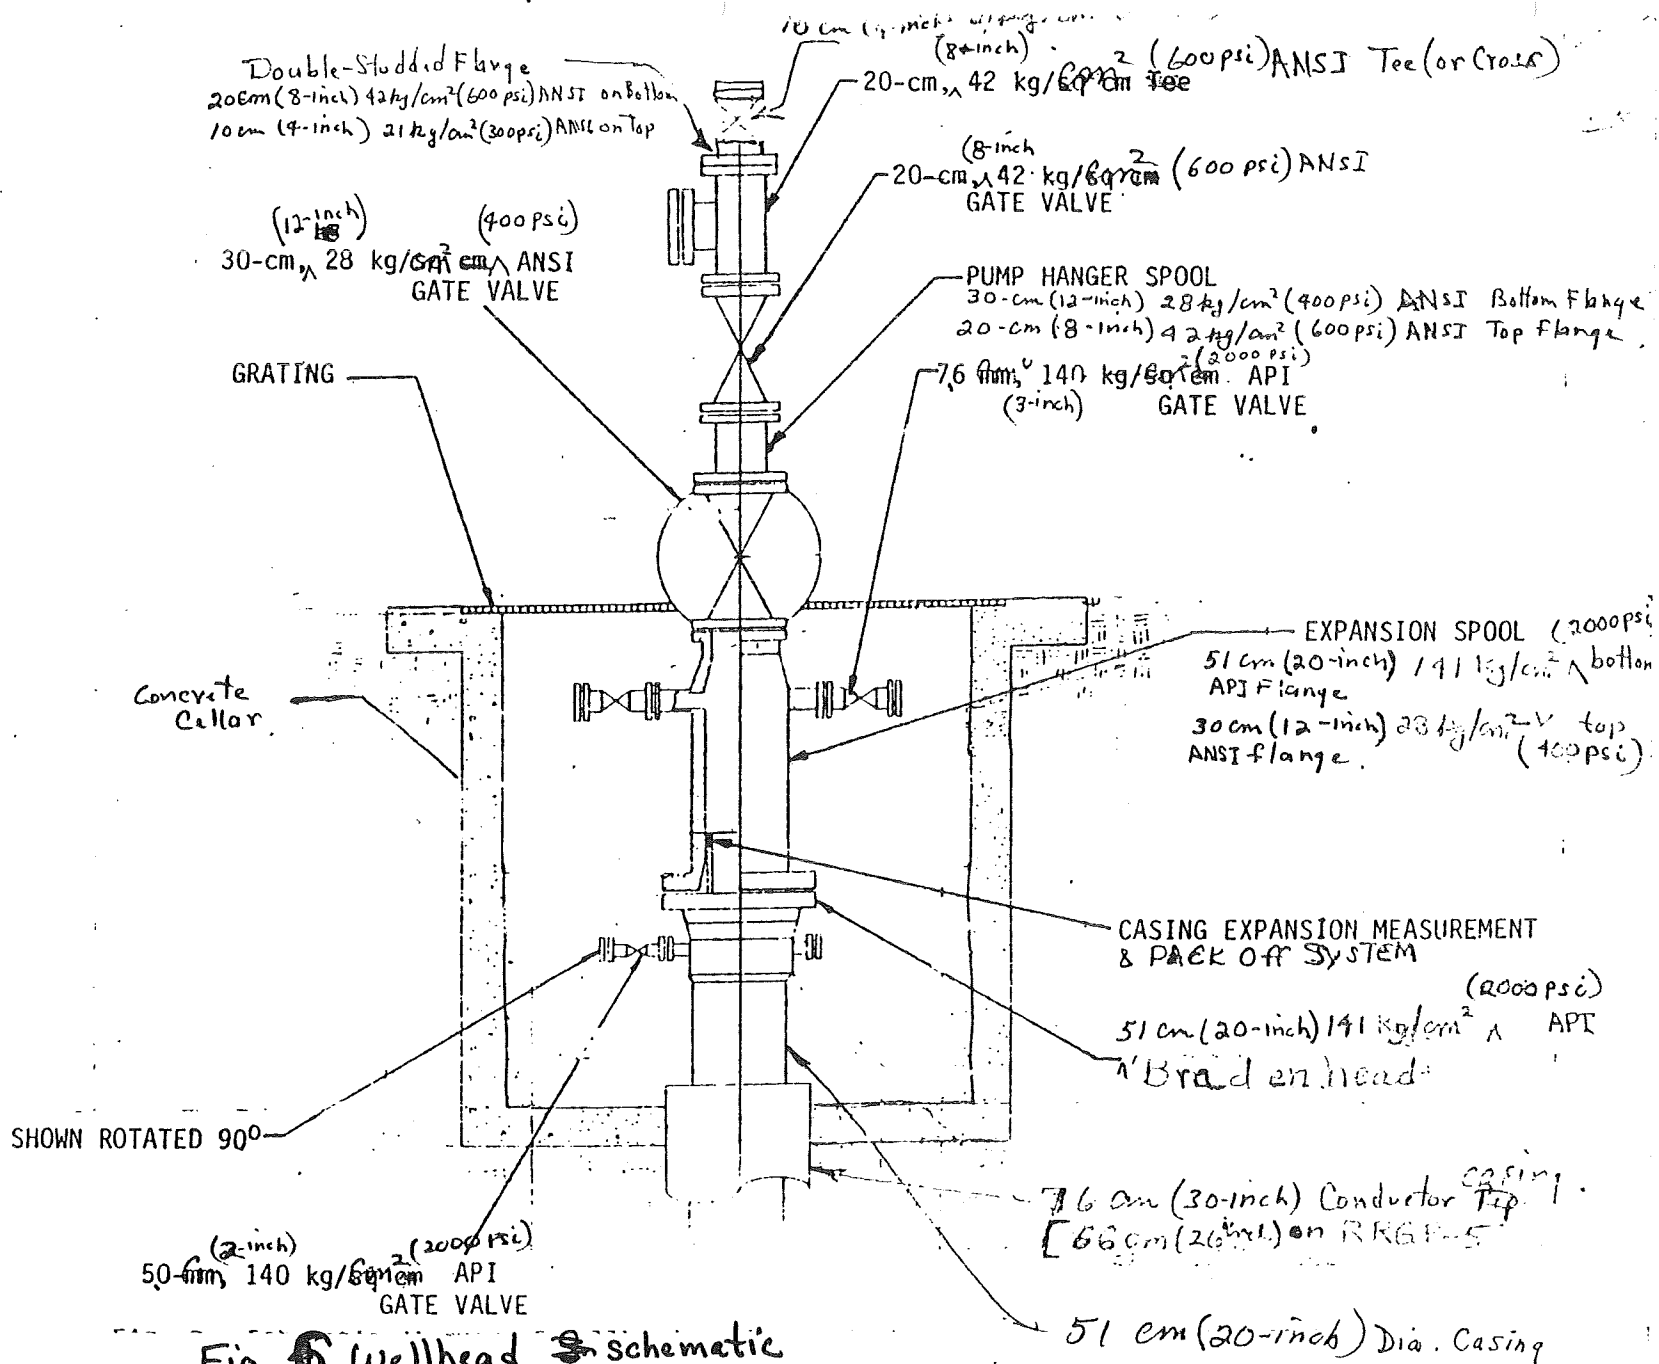 10 cm (4-inch)
Double-Studded Flange
20cm (8-inch) 42kg/cm² (600 psi) ANSI on Bottom
10 cm (4-inch) 21 kg/cm² (300psi) ANSI on Top
(8-inch)
20-cm, 42 kg/cm² (600psi) ANSI Tee (or Cross)
(8-inch
20-cm, 42 kg/cm² (600 psi) ANSI
GATE VALVE
(12-inch) (400 psi)
30-cm, 28 kg/cm² ANSI
GATE VALVE
PUMP HANGER SPOOL
30-cm (12-inch) 28 kg/cm² (400psi) ANSI Bottom Flange
20-cm (8-inch) 42 kg/cm² (600psi) ANSI Top Flange.
(2000 psi)
7.6 140 kg/cm² API
(3-inch) GATE VALVE
GRATING
EXPANSION SPOOL (2000psi
51 cm (20-inch) 141 kg/cm² bottom
API Flange
30 cm (12-inch) 28 kg/cm² top
ANSI flange. (400psi)
Concrete
Cellar
CASING EXPANSION MEASUREMENT
& PACK Off SYSTEM
(2000 psi)
51 cm (20-inch) 141 kg/cm² API
Bradenhead
SHOWN ROTATED 90°
76 cm (30-inch) Conductor casing.
[66 cm (26 inch) on RRGP-5
(2-inch) (2000 psi)
5.0 140 kg/cm² API
GATE VALVE
51 cm (20-inch) Dia. Casing
Fig. Wellhead schematic